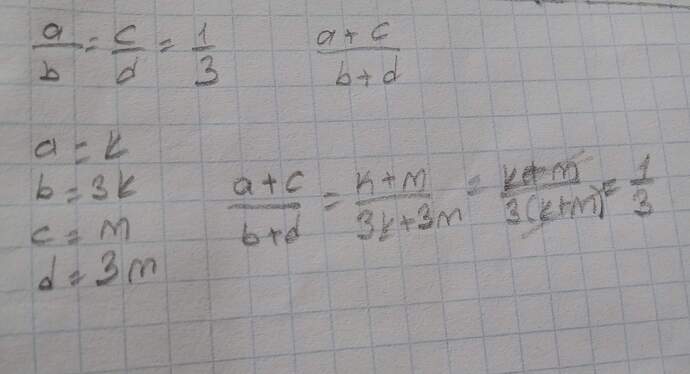 a/b = c/d = 1/3
a+c/b+d
a = k
b = 3k
c = m
d = 3m
a+c/b+d = k+m/3k+3m = k+m/3(k+m) = 1/3